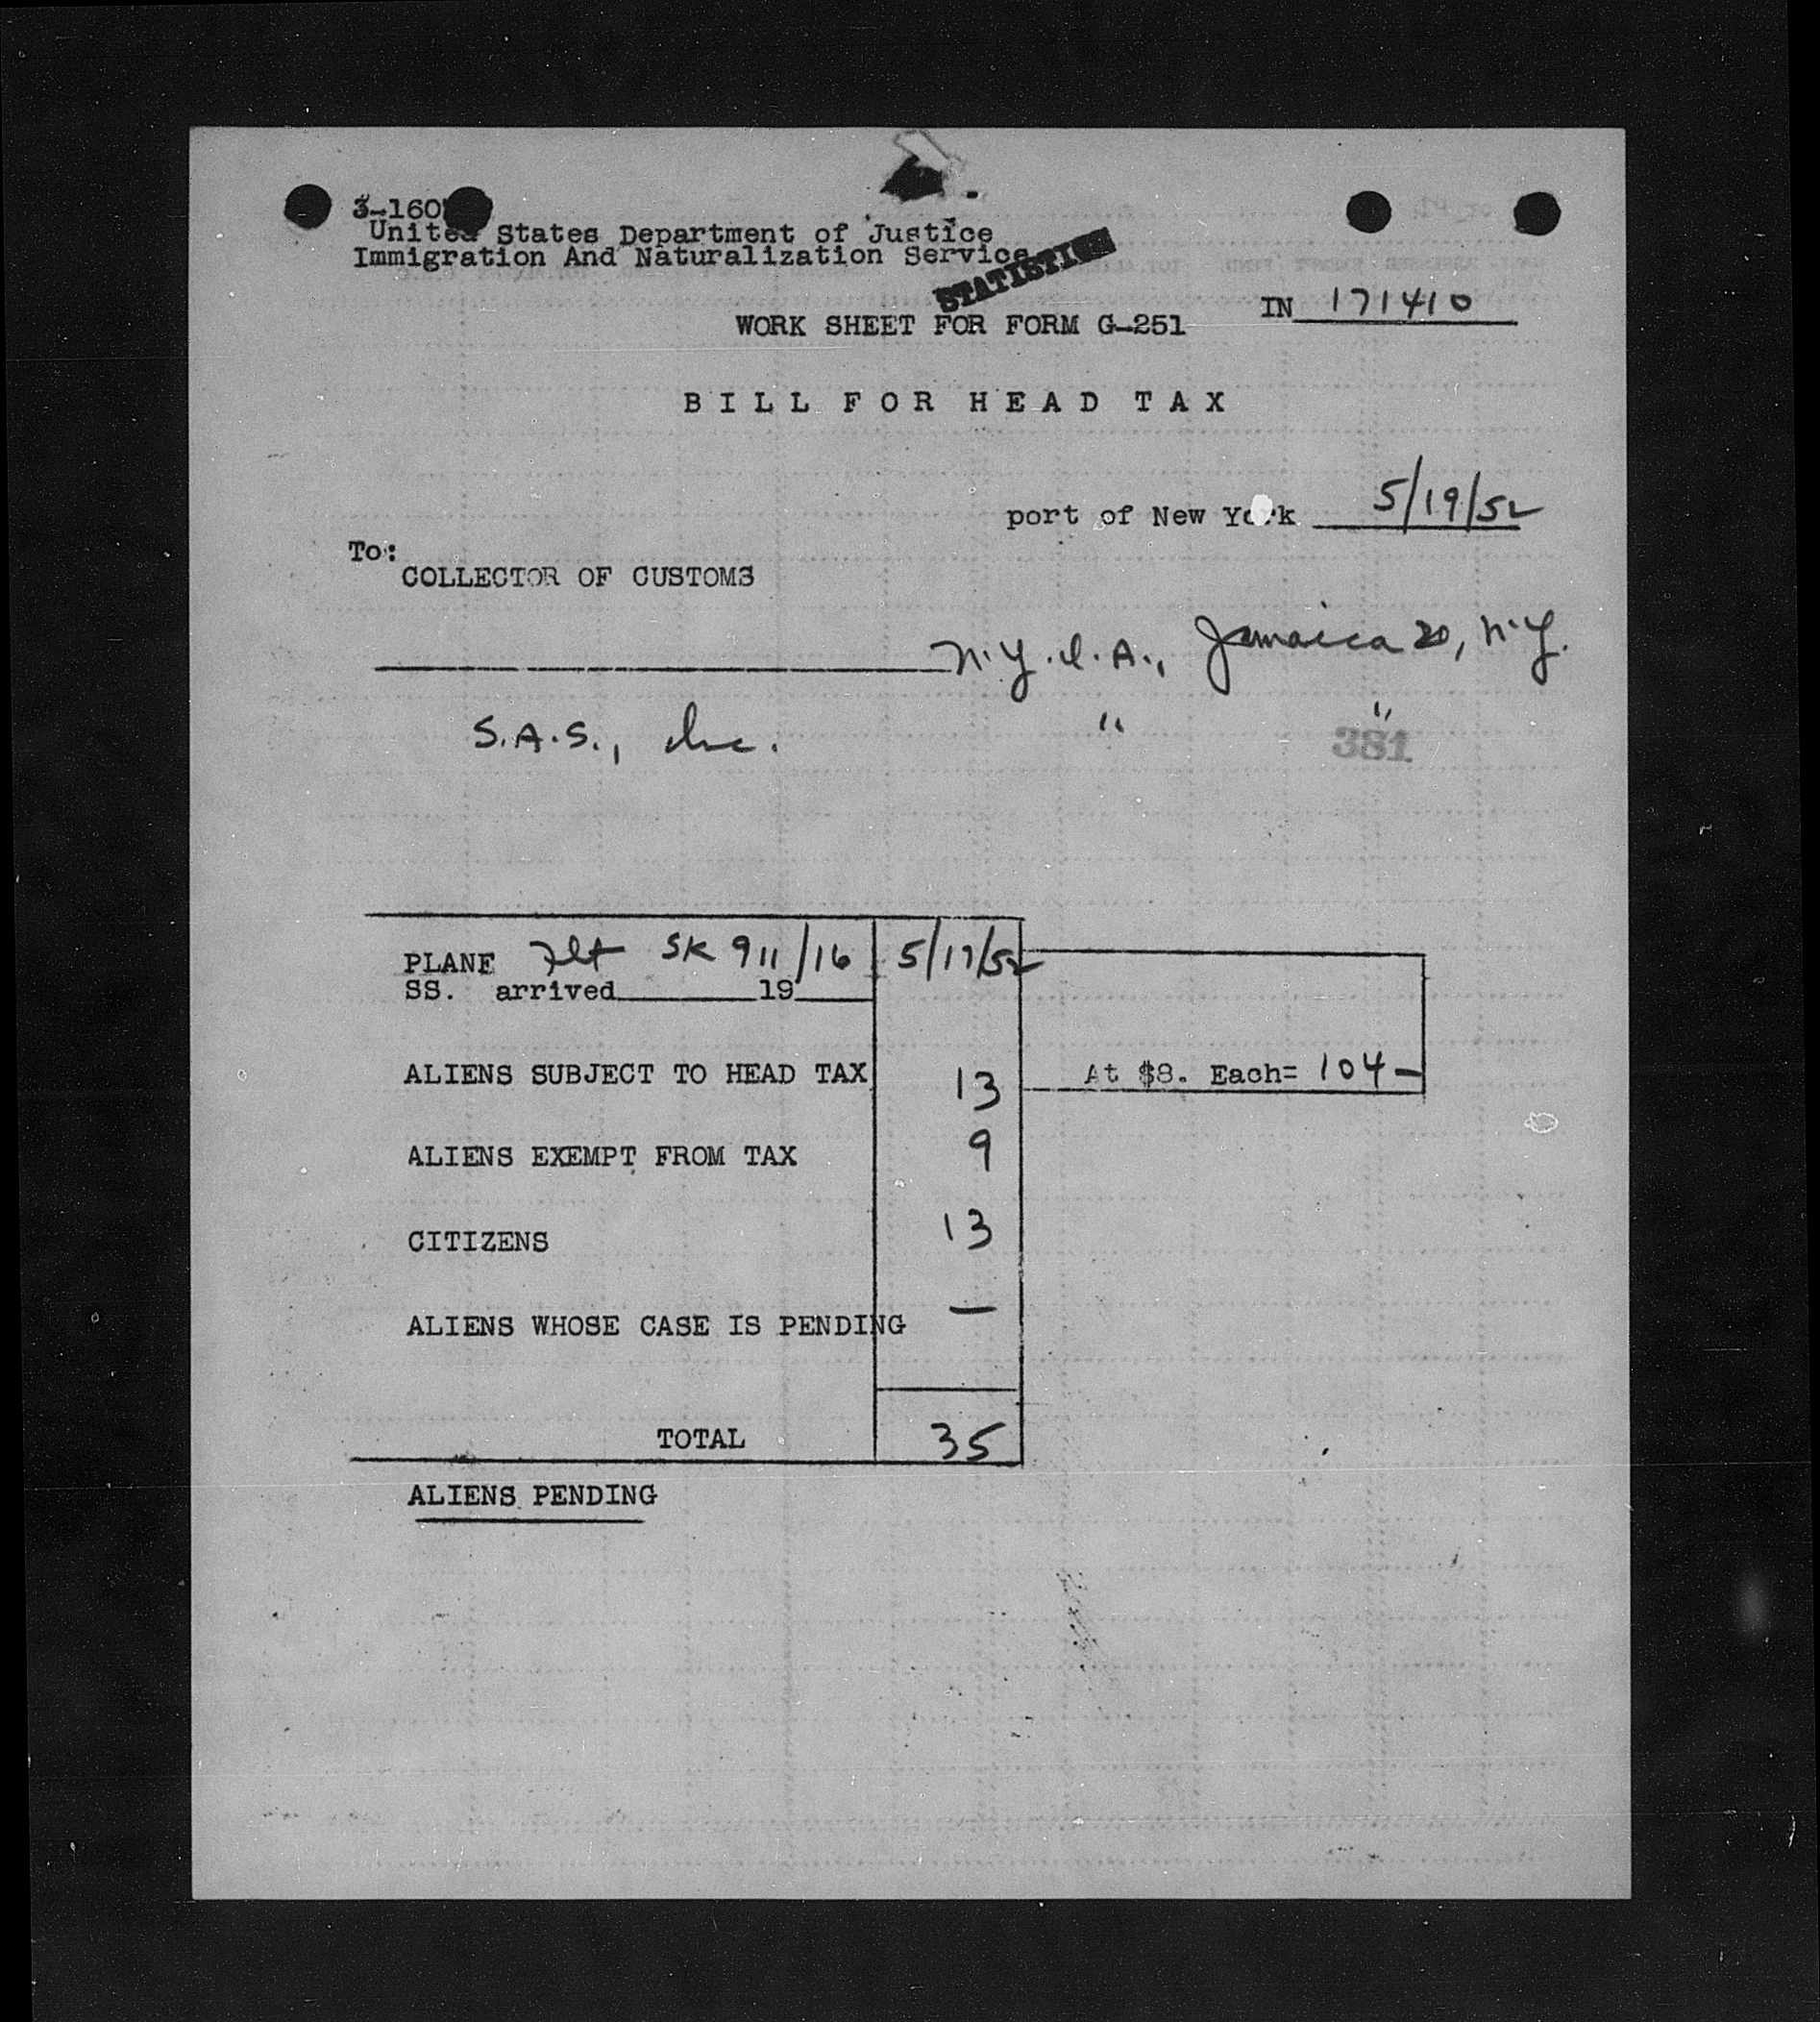 3-160
United States Department of Justice
Immigration And Naturalization Service
STATISTICS
IN 171410
WORK SHEET FOR FORM G-251
BILL FOR HEAD TAX
port of New York 5/19/52
To:
COLLECTOR OF CUSTOMS
N.Y.I.A., Jamaica 20, N.Y.
S.A.S., Inc. " "
381
PLANE Flt SK 911/16 5/17/52
SS. arrived 19
ALIENS SUBJECT TO HEAD TAX 13 At $8. Each= 104-
ALIENS EXEMPT FROM TAX 9
CITIZENS 13
ALIENS WHOSE CASE IS PENDING —
TOTAL 35
ALIENS PENDING